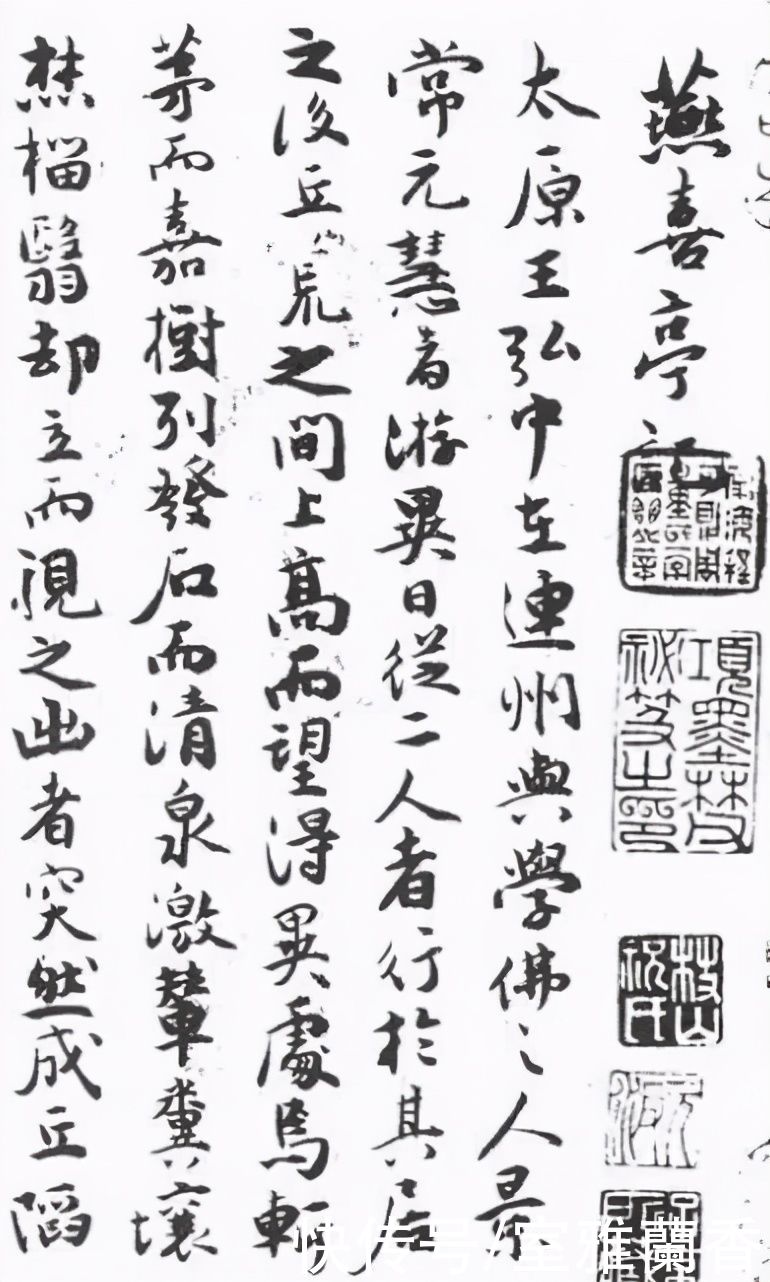 燕喜亭記
太原王弘中在連州與學佛之人景
常元慧者游異日從二人者行於其居
之後丘荒之間上高而望得異處焉斬
茅而嘉樹列發石而清泉激輦糞壤
焚椔翳却立而視之出者突然成丘陷
項墨林父秘笈之印
枝山祝氏
快传号/室雅蘭香